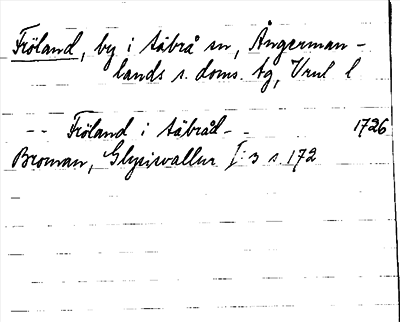 Fröland, by i Säbrå sn, Ångerman-
lands s. doms. tg, Vrnl l
-- Fröland i Säbråd - - 1726
Broman, Glysisvallur I:3 s. 172